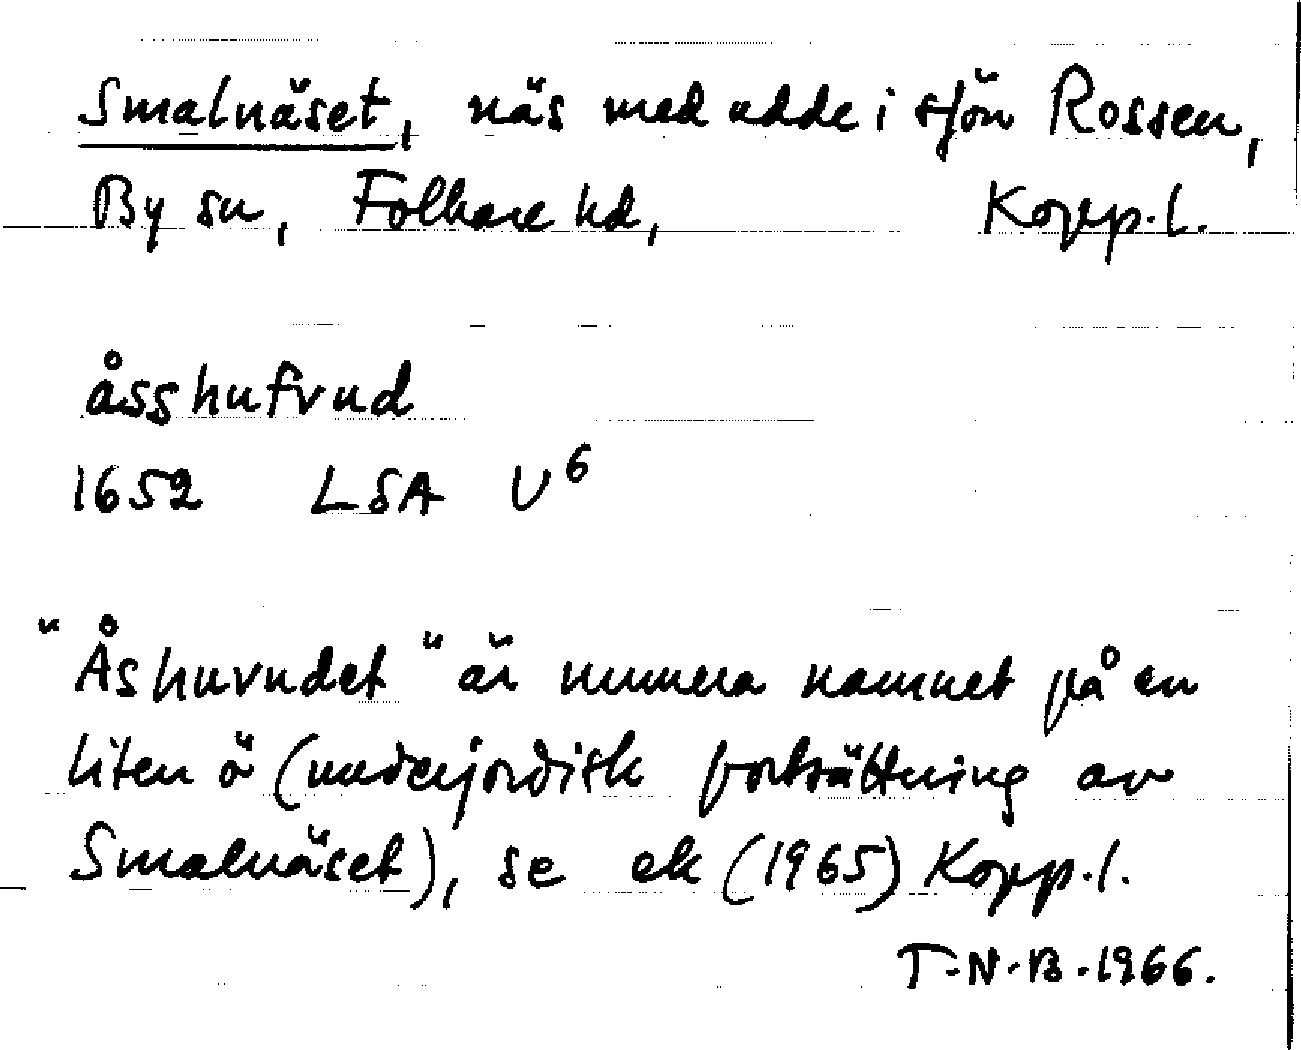 Smalnäset, näs med udde i sjön Rossen,
By sn, Folkare hd, Kopp.l.
åsshufvud
1652 LSA U⁶
"Åshuvudet" är numera namnet på en
liten ö (underjordisk fortsättning av
Smalnäset), se ek (1965) Kopp.l.
T.N.B.1966.